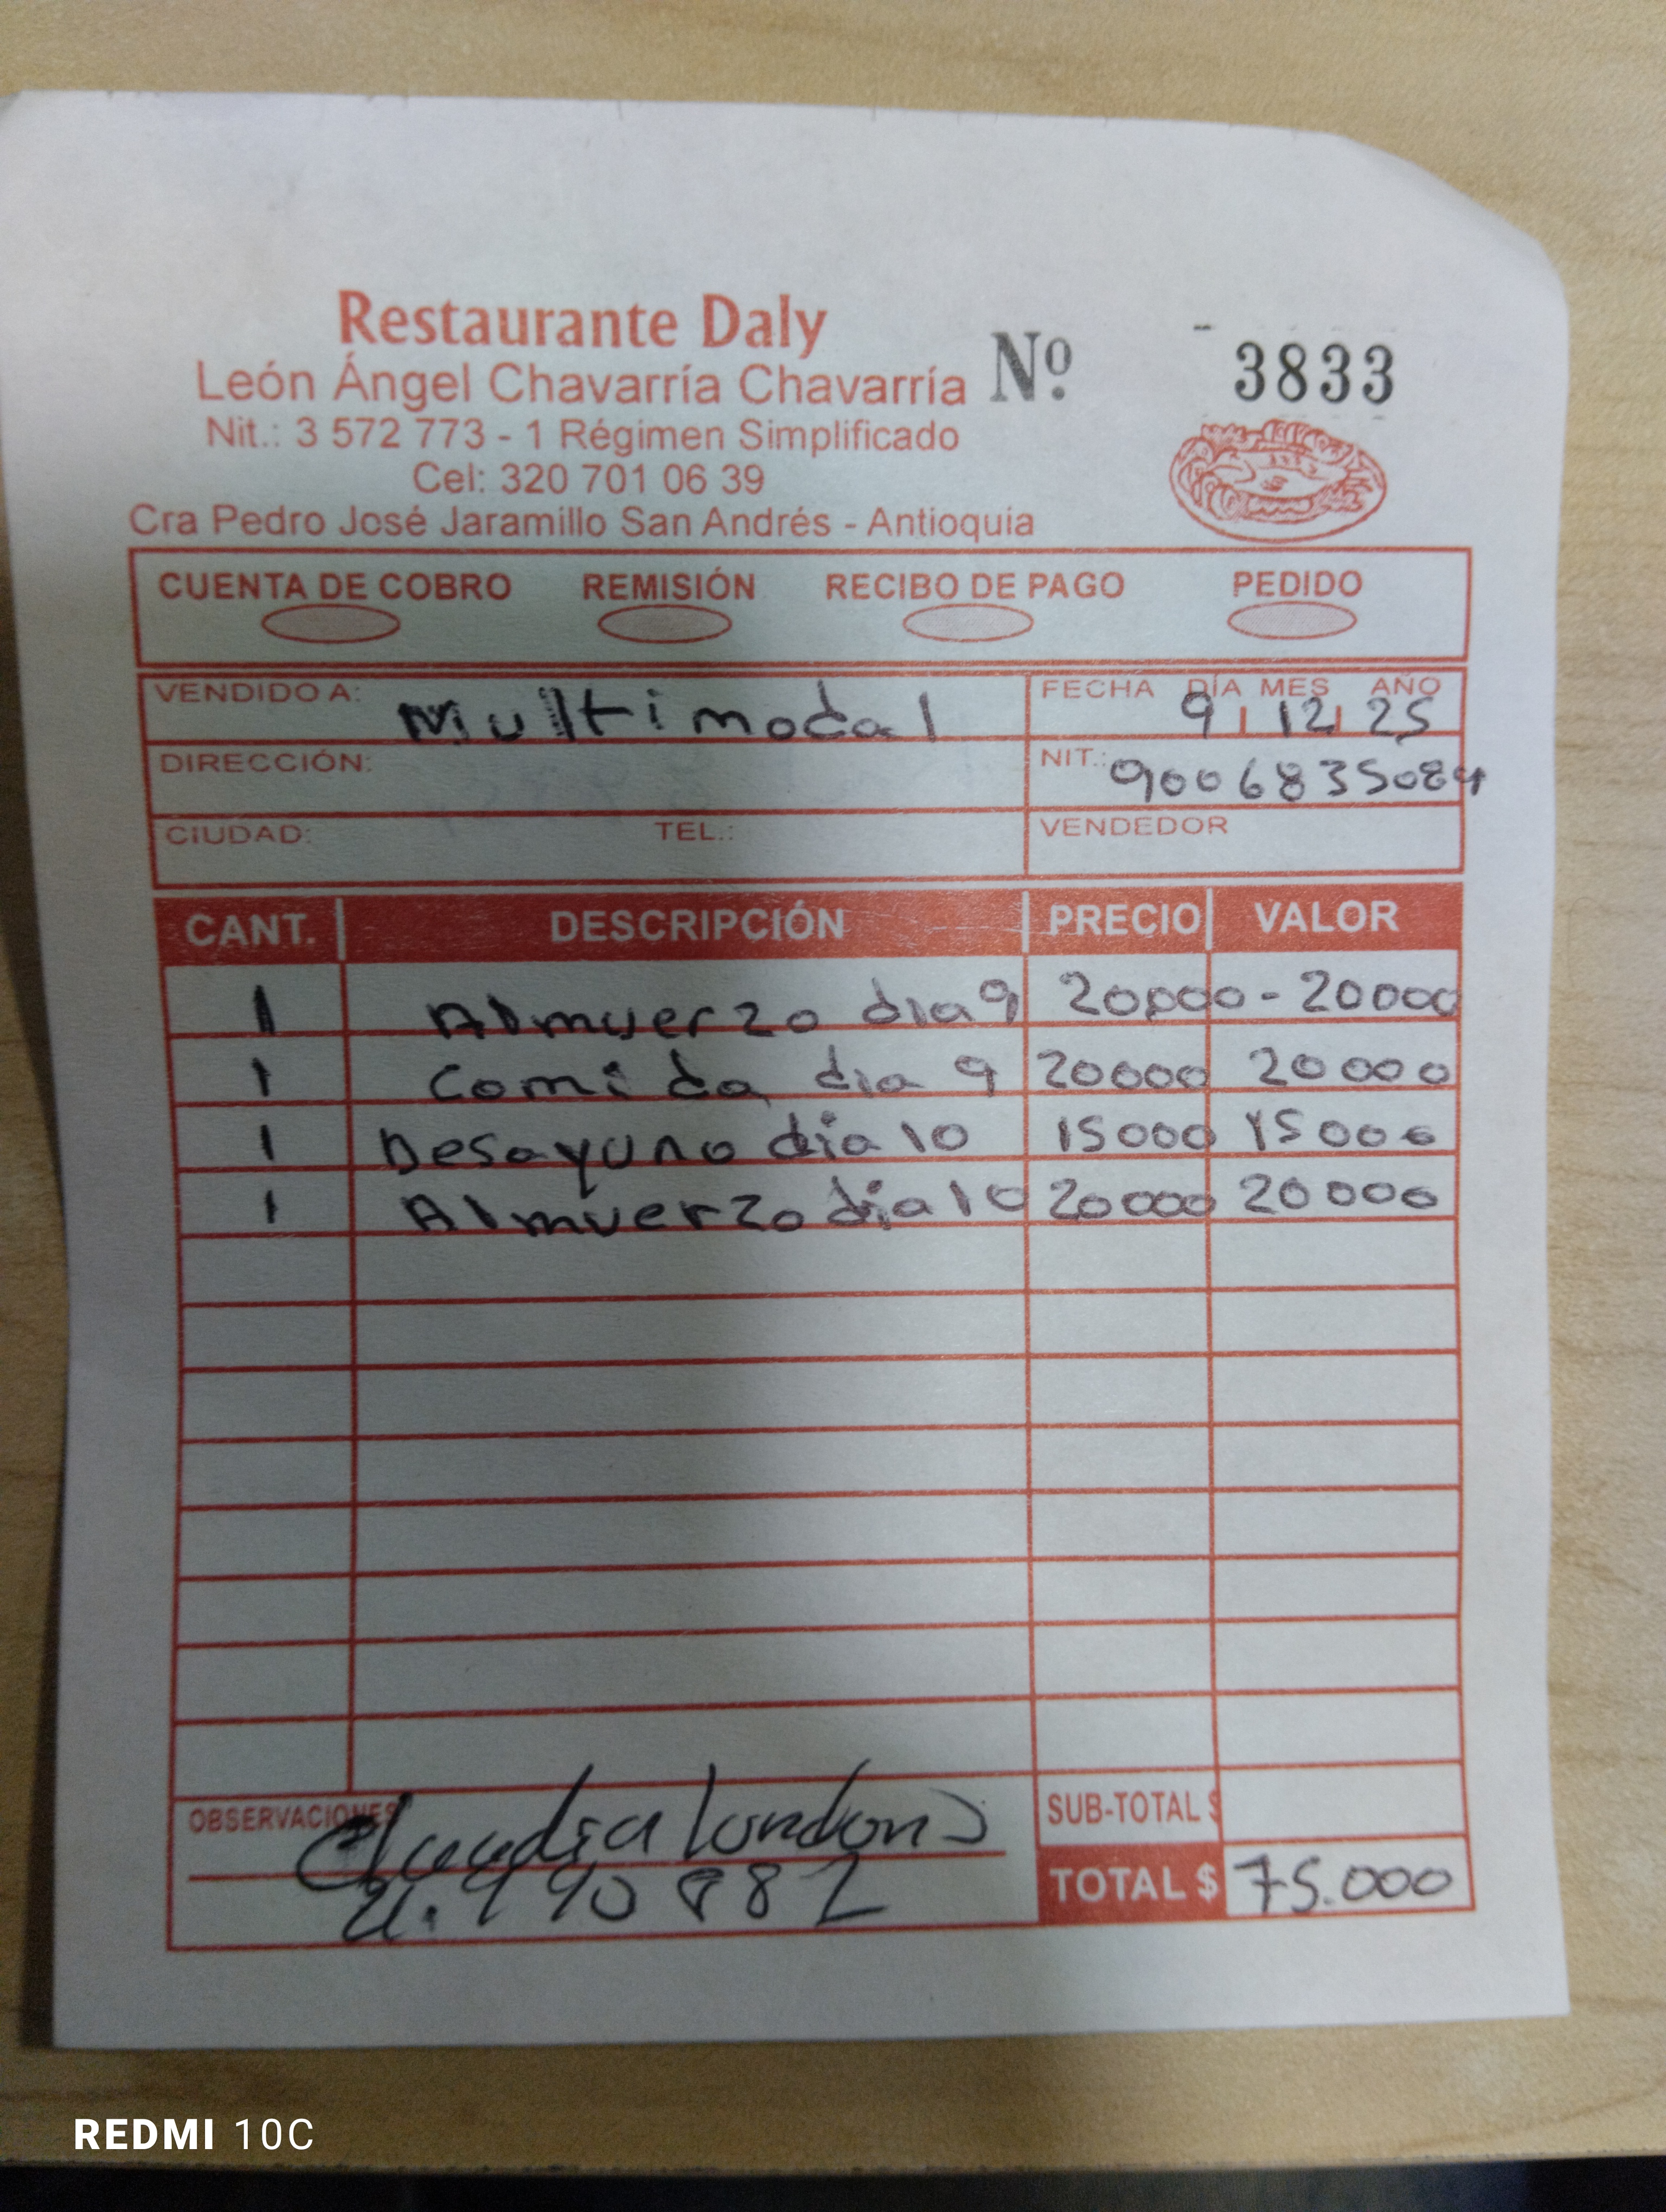 Restaurante Daly
León Ángel Chavarría Chavarría Nº 3833
Nit.: 3 572 773 - 1 Régimen Simplificado
Cel: 320 701 06 39
Cra Pedro José Jaramillo San Andrés - Antioquia
CUENTA DE COBRO REMISIÓN RECIBO DE PAGO PEDIDO
VENDIDO A: Multimodal FECHA DÍA MES AÑO 9 12 25
DIRECCIÓN: NIT.: 9006835084
CIUDAD: TEL.: VENDEDOR
CANT. DESCRIPCIÓN PRECIO VALOR
1 Almuerzo dia 9 20000 - 20000
1 Comida dia 9 20000 20000
1 Desayuno dia 10 15000 15000
1 Almuerzo dia 10 20000 20000
OBSERVACIONES Claudia SUB-TOTAL $
TOTAL $ 75.000
REDMI 10C